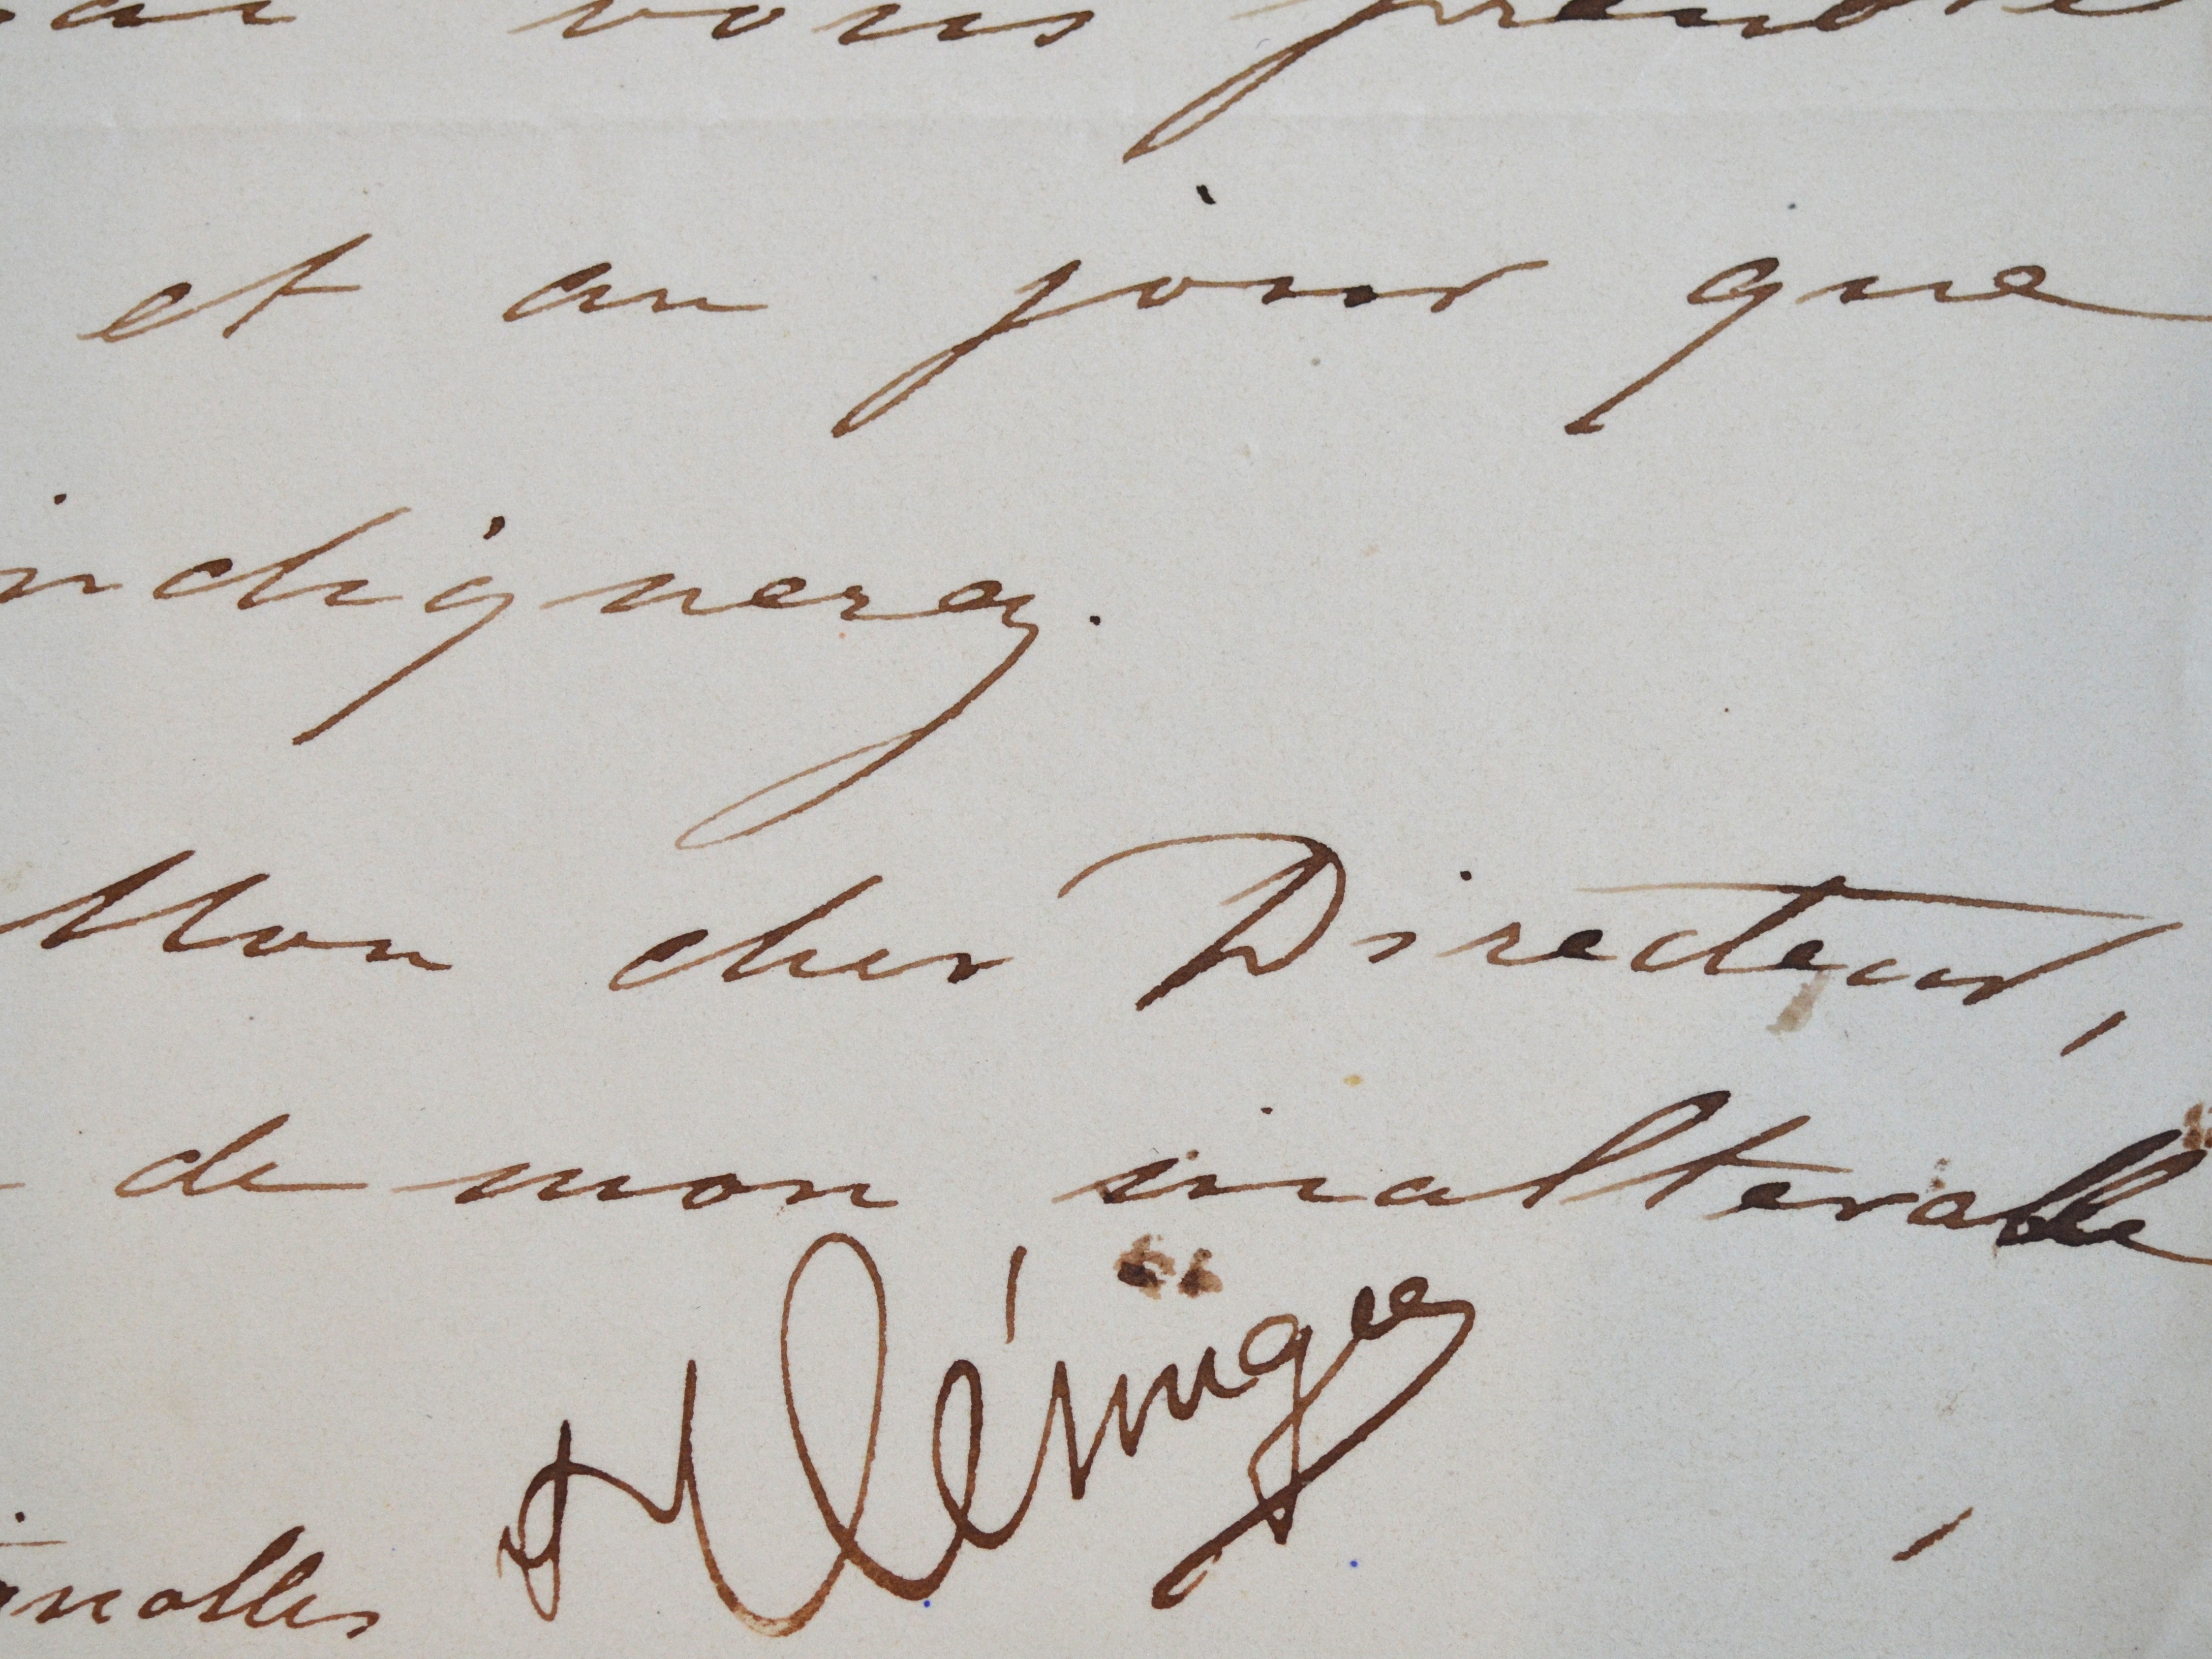 vous prendre
et au jour que
indiquerez.
Mon cher Directeur,
de mon inalterable